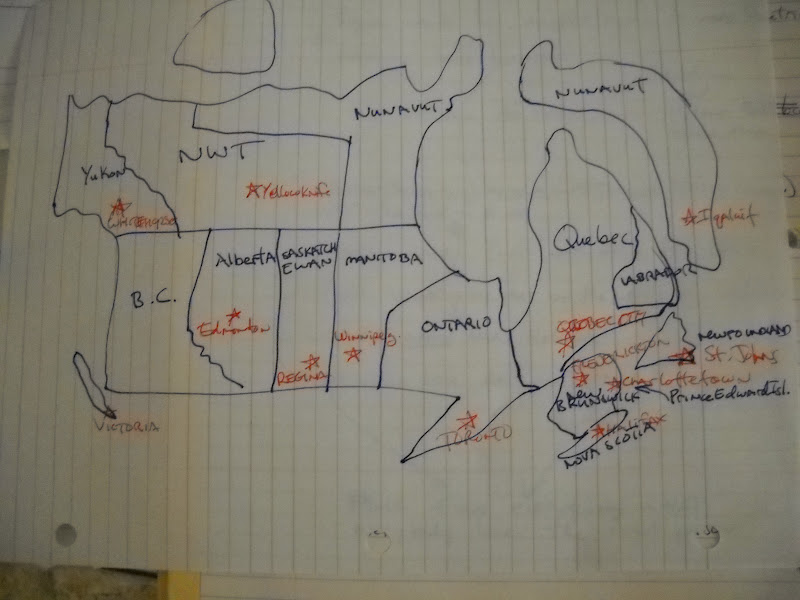 NUNAVUT
NUNAVUT
Yukon
NWT
Yellowknife
WHITEHORSE
Iqaluit
B.C.
Alberta
SASKATCH
EWAN
MANITOBA
Quebec
LABRADOR
Edmonton
Winnipeg
ONTARIO
QUEBEC CITY
NEWFOUNDLAND
St. Johns
REGINA
FREDRICKTON
Charlottetown
New
BRUNSWICK
Prince Edward Isl.
VICTORIA
TORONTO
Halifax
NOVA SCOTIA